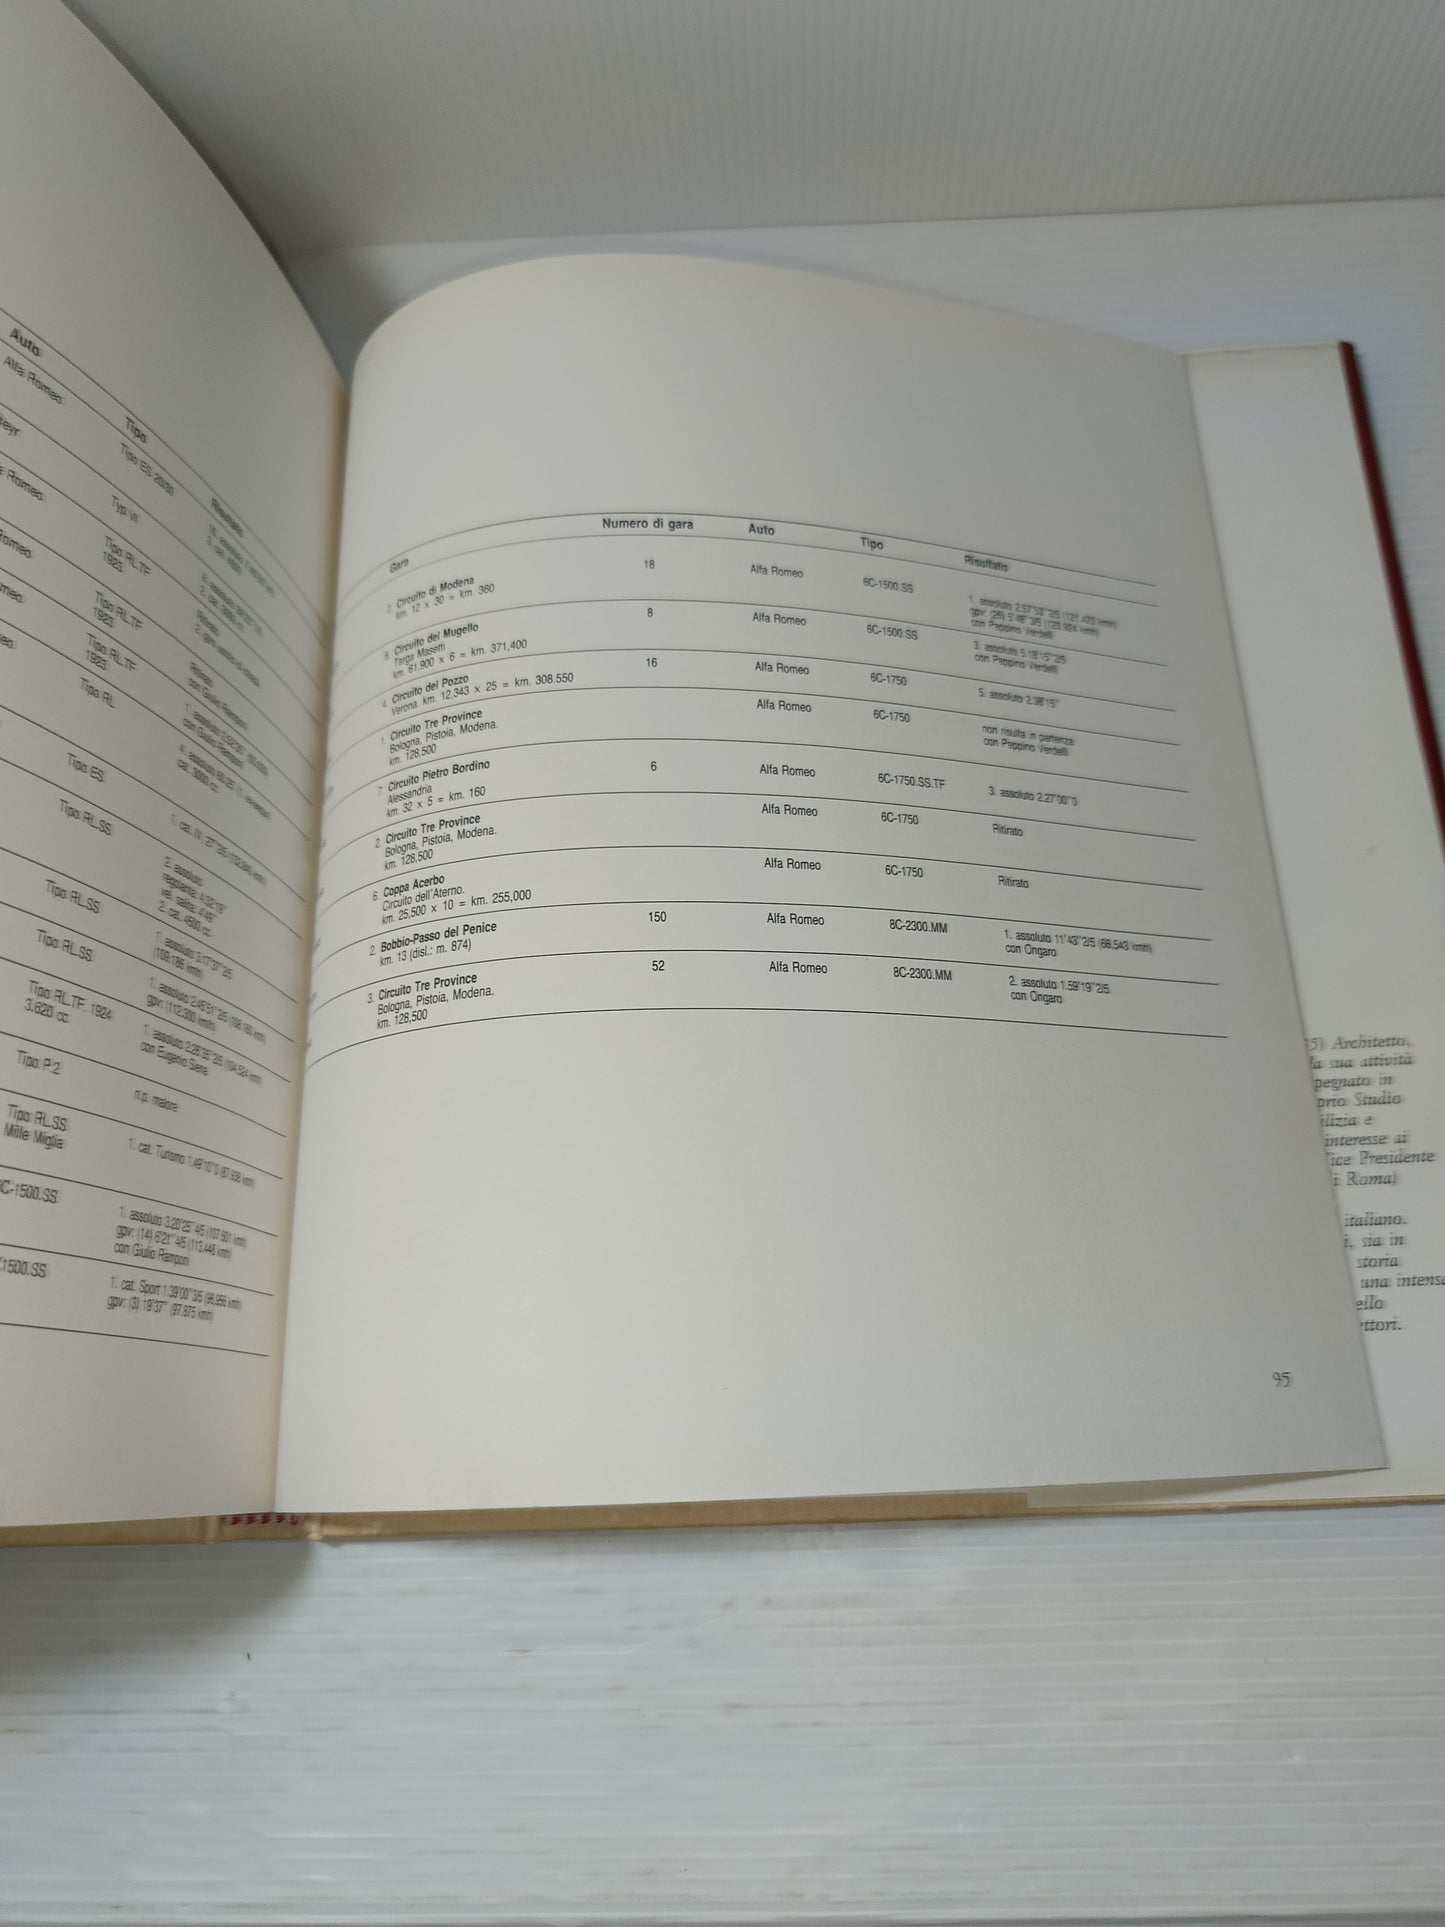 Auto
Tipo
Risultato
Alfa Romeo
Tipo ES 20/30
Typ VI
Romeo
Tipo RL.TF
1923
Tipo RL.TF
1923
Ritirato
Tipo RL.TF
1923
Ritirato
con Giulio Ramponi
Tipo RL
con Giulio Ramponi
Tipo ES
Tipo RL.SS
2. assoluto
2. cat. 4500 cc.
Tipo RL.SS
1. assoluto 3.17'37"2/5
(109.186 kmh)
Tipo RL.SS
Tipo RL.TF. 1924
3.620 cc.
con Eugenio Siena
Tipo P.2
n.p. malore
Tipo RL.SS
Mille Miglia
1. cat. Turismo 1.49'10"0 (87.938 kmh)
6C-1500.SS
1. assoluto 3.20'25"4/5 (107.601 kmh)
gpv: (14) 6'21"4/5 (113.448 kmh)
con Giulio Ramponi
1500.SS
1. cat. Sport 1.39'00"3/5 (96.956 kmh)
gpv: (3) 19'37" (97.875 kmh)
Gara
Numero di gara
Auto
Tipo
Risultato
2. Circuito di Modena
km. 12 x 30 = km. 360
18
Alfa Romeo
6C-1500.SS
1. assoluto 2.57'53"2/5 (121.423 kmh)
gpv: (26) 5'48"3/5 (123.924 kmh)
con Peppino Verdelli
8. Circuito del Mugello
Targa Masetti
km. 61,900 x 6 = km. 371,400
8
Alfa Romeo
6C-1500.SS
3. assoluto 5.18'15"2/5
con Peppino Verdelli
4. Circuito del Pozzo
Verona. km. 12,343 x 25 = km. 308.550
16
Alfa Romeo
6C-1750
5. assoluto 2.38'15"
1. Circuito Tre Province
Bologna, Pistoia, Modena.
km. 128,500
Alfa Romeo
6C-1750
non risulta in partenza
con Peppino Verdelli
7. Circuito Pietro Bordino
Alessandria
km. 32 x 5 = km. 160
6
Alfa Romeo
6C-1750.SS.TF
3. assoluto 2.27'00"0
2. Circuito Tre Province
Bologna, Pistoia, Modena.
km. 128,500
Alfa Romeo
6C-1750
Ritirato
6. Coppa Acerbo
Circuito dell'Aterno.
km. 25,500 x 10 = km. 255,000
Alfa Romeo
6C-1750
Ritirato
2. Bobbio-Passo del Penice
km. 13 (disl.: m. 874)
150
Alfa Romeo
8C-2300.MM
1. assoluto 11'43"2/5 (66.543 kmh)
con Ongaro
3. Circuito Tre Province
Bologna, Pistoia, Modena.
km. 128,500
52
Alfa Romeo
8C-2300.MM
2. assoluto 1.59'19"2/5
con Ongaro
95
5) Architetto,
la sua attività
pegnato in
prio Studio
ilizia e
interesse ai
ice Presidente
i Roma)
italiano.
i, sia in
storia
una intensa
ello
ettori.